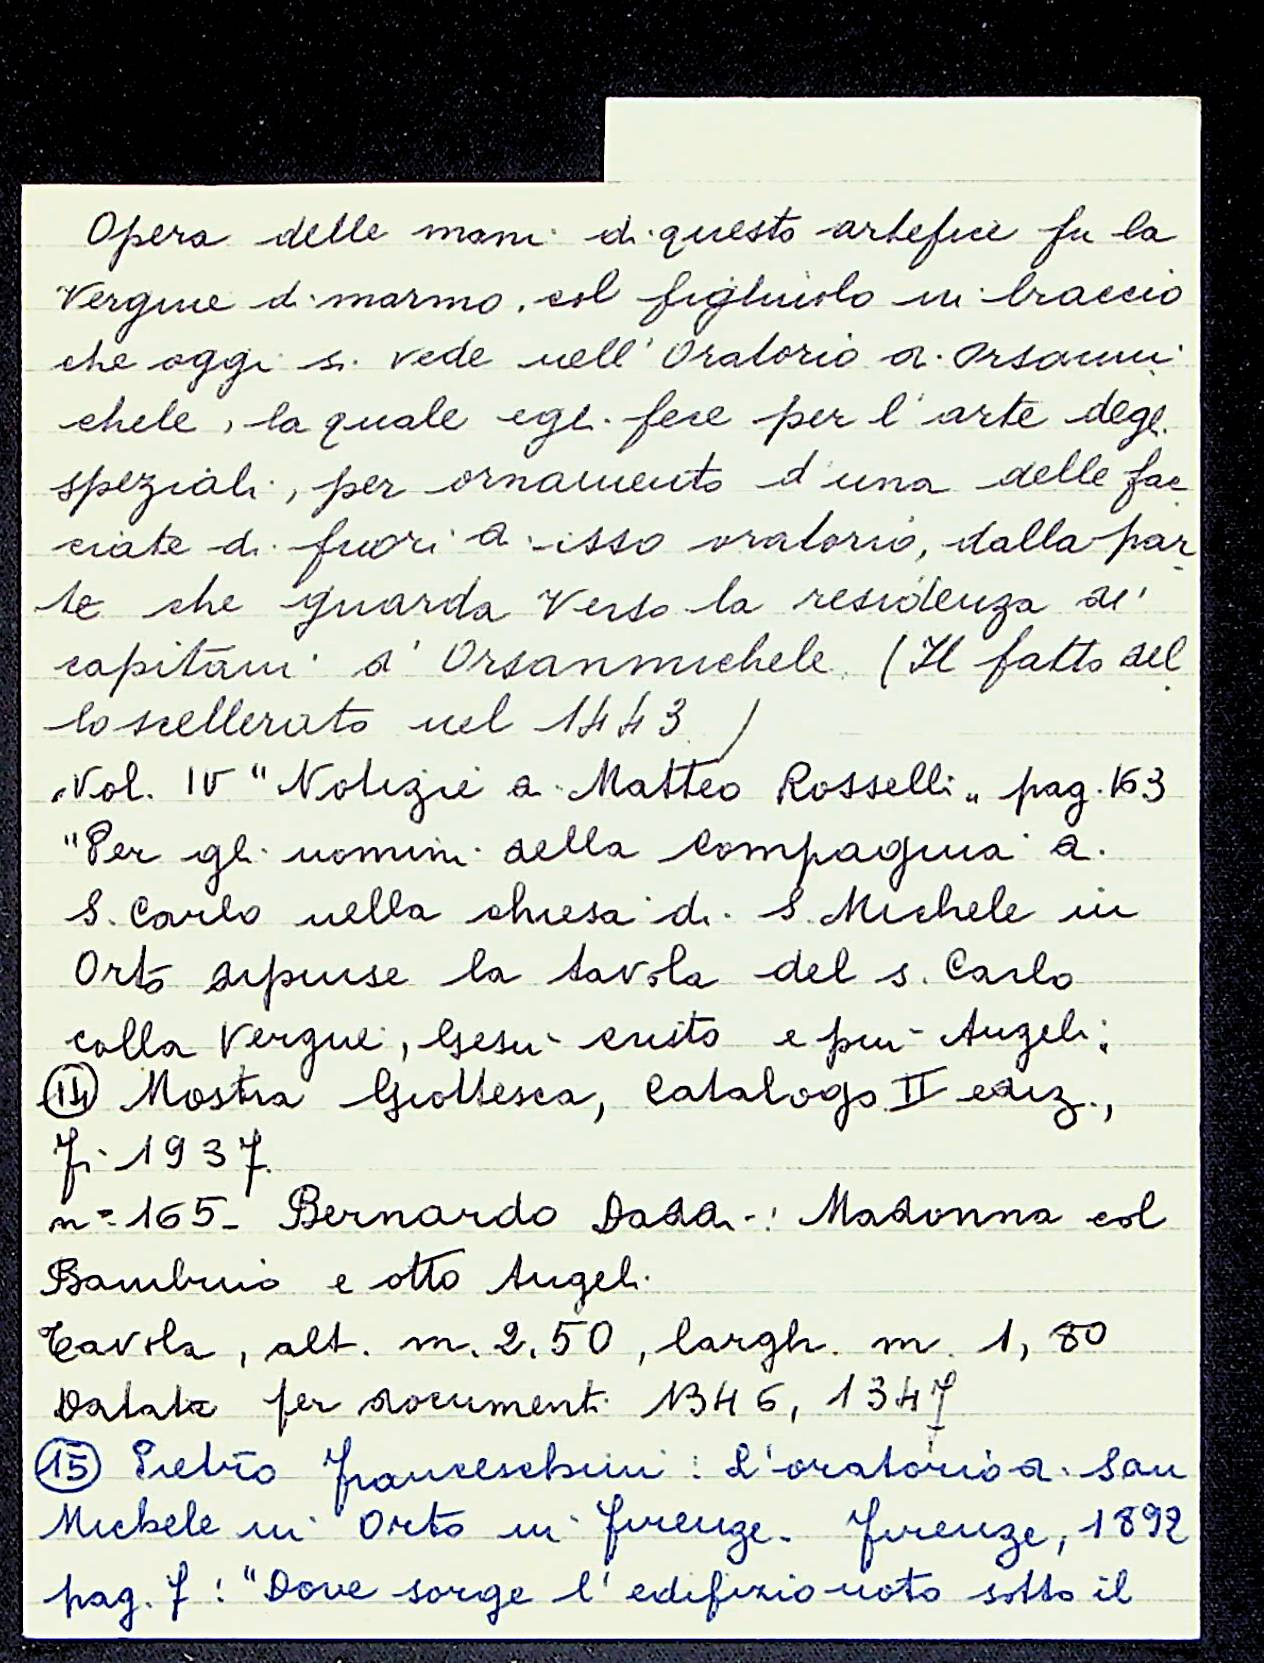 Opera delle mani di questo artefice fu la
Vergine di marmo, col figliuolo in braccio
che oggi si vede nell' Oratorio di Orsanmi
chele, la quale egli fece per l'arte degli
speziali, per ornamento d'una delle fac
ciate di fuori di esso oratorio, dalla par
te che guarda verso la residenza de'
capitani d'Orsanmichele. (Il fatto del
lo scellerato nel 1443)
Vol. IV "Notizie di Matteo Rosselli" pag. 163
"Per gli uomini della Compagnia di
S. Carlo nella chiesa di S. Michele in
Orto dipinse la tavola del S. Carlo
colla Vergine, Gesù Cristo e più Angeli;
(14) Mostra Giottesca, Catalogo II ediz.,
Fi. 1937.
n° 165 - Bernardo Daddi: Madonna col
Bambino e otto Angeli.
Tavola, alt. m. 2,50, largh. m. 1,80
Datata per documenti 1346, 1347
(15) Pietro Franceschini: L'oratorio di San
Michele in Orto in Firenze. Firenze, 1892
pag. 7: "Dove sorge l'edifizio noto sotto il